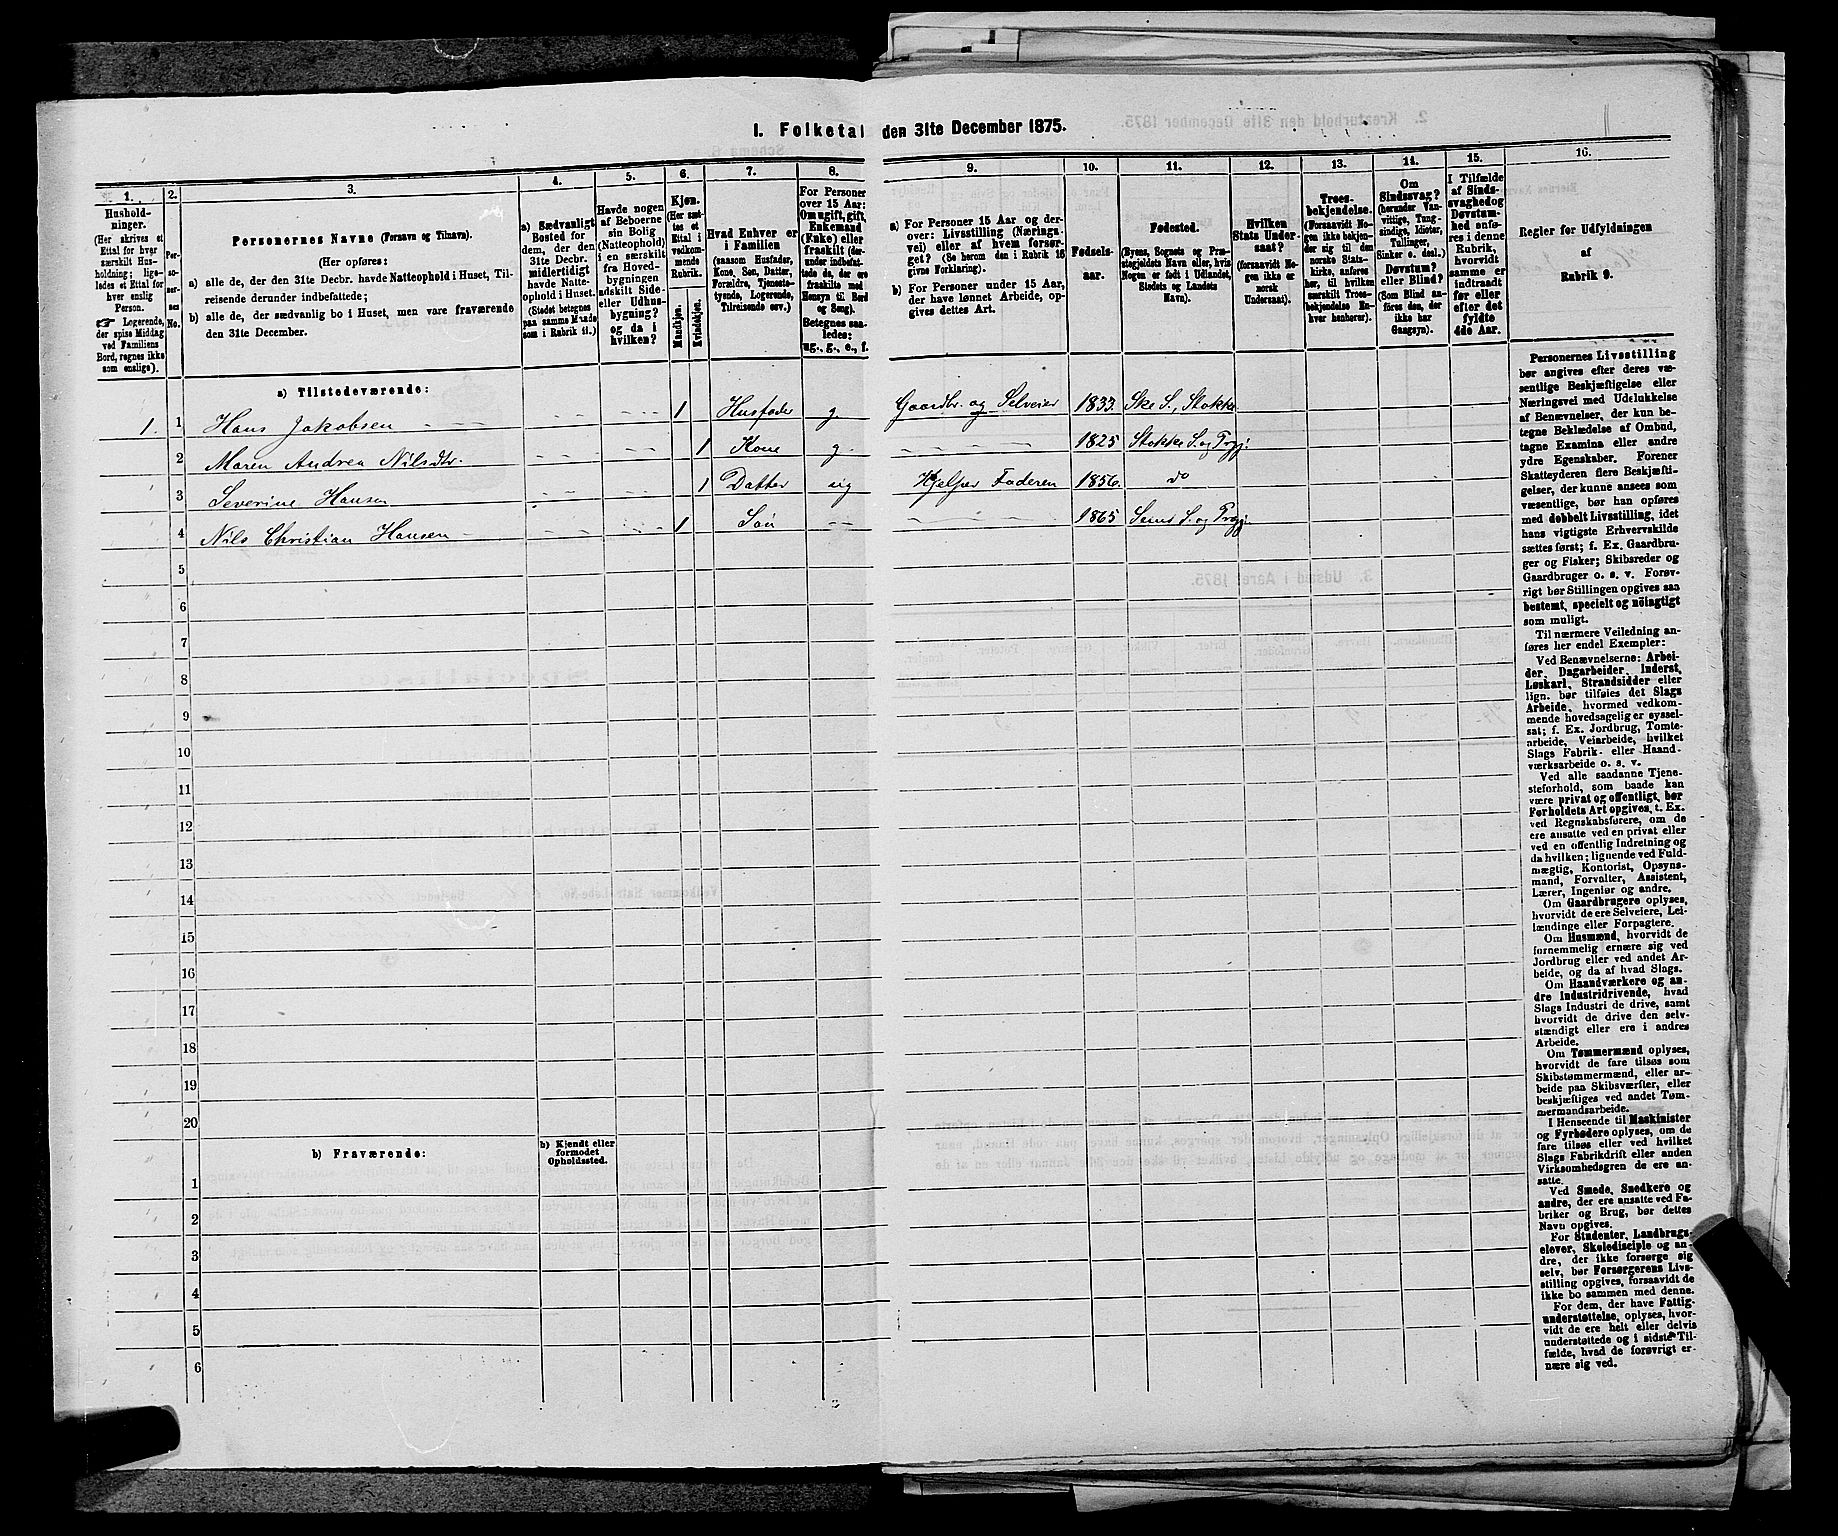 I. Folketal den 31te December 1875.
1.
Hushold-
ninger.
(Her skrives et
Ettal for hver
særskilt Hus-
holdning; lige-
ledes et Ettal for
hver enslig
Person.
☞ Logerende,
der spise Middag
ved Familiens
Bord, regnes ikke
som enslige).
2.
Per-
so-
ner-
nes
No.
3.
Personernes Navne (Fornavn og Tilnavn).
(Her opføres:
a) alle de, der den 31te Decbr. havde Natteophold i Huset, Til-
reisende derunder indbefattede;
b) alle de, der sædvanlig bo i Huset, men vare fraværende
den 31te December.
4.
a) Sædvanligt
Bosted for
dem, der den
31te Decbr.
midlertidigt
havde Natte-
ophold i Huset.
(Stedet betegnes
paa samme Maade
som i Rubrik 11.)
5.
Havde nogen
af Beboerne
sin Bolig
(Natteophold)
i en særskilt
fra Hoved-
bygningen
adskilt Side-
eller Udhus-
bygning?
og da i
hvilken?
6.
Kjøn.
(Her sæt-
tes et
Ettal i
vedkom-
mende
Rubrik.
Mandkjøn.
Kvindekjøn.
7.
Hvad Enhver er
i Familien
(saasom Husfader,
Kone, Søn, Datter,
Forældre, Tjeneste-
tyende, Logerende,
Tilreisende osv.)
8.
For Personer
over 15 Aar:
Om ugift, gift,
Enkemand
(Enke) eller
fraskilt (der-
under indbefat-
tede de, der ere
fraskilte med
Hensyn til Bord
og Seng).
Betegnes saa-
ledes:
ug., g., e., f.
9.
a) For Personer 15 Aar og der-
over: Livsstilling (Nærings-
vei) eller af hvem forsør-
get? (Se herom den i Rubrik 16
givne Forklaring).
b) For Personer under 15 Aar,
der have lønnet Arbeide, op-
gives dettes Art.
10.
Fødsels-
aar.
11.
Fødested.
(Byens, Sognets og Præ-
stegjeldets Navn eller, hvis
Nogen er født i Udlandet,
Stedets og Landets
Navn).
12.
Hvilken
Stats Under-
saat?
(forsaavidt No-
gen ikke er
norsk
Undersaat).
13.
Troes-
bekjendelse.
(Forsaavidt No-
gen ikke bekjen-
der sig til den
norske Stats-
kirke, anføres
her, til hvilken
særskilt Troes-
bekjendelse En-
hver henhører).
14.
Om
Sindssvag?
(herunder Van-
vittige, Tung-
sindige, Idioter,
Tullinger,
Sinker o. desl.)
Døvstum?
eller Blind?
(Som Blind an-
føres den, der
ikke har
Gangsyn).
15.
I Tilfælde
af Sinds-
svaghed og
Døvstum-
hed anfø-
res i denne
Rubrik,
hvorvidt
samme er
indtraadt
før eller
efter det
fyldte
4de Aar.
16.
Regler for Udfyldningen
af
Rubrik 9.
a) Tilstedeværende:
1. 1 Hans Jakobsen 1 Husfader g. Gaardbr. og Selveier 1833. Ske S., Stokke
2 Maren Andrea Nilsdtr. 1 Kone g. 1825 Stokke S. og Prgj.
3 Severine Hansen 1 Datter ug Hjelper Faderen 1856. do
4 Nils Christian Hansen 1 Søn 1865 Sems S. og Prgj.
5
6
7
8
9
10
11
12
13
14
15
16
17
18
19
20
b) Fraværende:
b) Kjendt eller
formodet
Opholdssted.
1
2
3
4
5
6
Personernes Livsstilling
bør angives efter deres væ-
sentlige Beskjæftigelse eller
Næringsvei med Udelukkelse
af Benævnelser, der kun be-
tegne Beklædelse af Ombud,
tagne Examina eller andre
ydre Egenskaber. Forener
Skatteyderen flere Beskjæfti-
gelser, der kunne ansees som
væsentlige, bør han opføres
med dobbelt Livsstilling, idet
hans vigtigste Erhvervskilde
sættes først; f. Ex. Gaardbru-
ger og Fisker; Skibsreder og
Gaardbruger o. s. v. Forøv-
rigt bør Stillingen opgives saa
bestemt, specielt og nøiagtigt
som muligt.
Til nærmere Veiledning an-
føres her endel Exempler:
Ved Benævnelserne: Arbei-
der, Dagarbeider, Inderst,
Løskarl, Strandsidder eller
lign. bør tilføies det Slags
Arbeide, hvormed vedkom-
mende hovedsagelig er syssel-
sat; f. Ex. Jordbrug, Tomte-
arbeide, Veiarbeide, hvilket
Slags Fabrik- eller Haand-
værksarbeide o. s. v.
Ved alle saadanne Tjene-
steforhold, som baade kan
være privat og offentligt, bør
Forholdets Art opgives, t. Ex.
ved Regnskabsførere, om de
ere ansatte ved en privat eller
ved en offentlig Indretning og
da hvilken; lignende ved Fuld-
mægtig, Kontorist, Opsyns-
mand, Forvalter, Assistent,
Lærer, Ingeniør og andre.
Om Gaardbrugere oplyses,
hvorvidt de ere Selveiere, Lei-
lændinge eller Forpagtere.
Om Husmænd, hvorvidt de
fornemmelig ernære sig ved
Jordbrug eller ved andet Ar-
beide, og da af hvad Slags.
Om Haandværkere og an-
dre Industridrivende, hvad
Slags Industri de drive, samt
hvorvidt de drive den selv-
stændigt eller ere i andres
Arbeide.
Om Tømmermænd oplyses,
hvorvidt de fare tilsøs som
Skibstømmermænd, eller ar-
beide paa Skibsværfter, eller
beskjæftiges ved andet Tøm-
mermandsarbeide.
I Henseende til Maskinister
og Fyrbødere oplyses, om de
fare tilsøs eller ved hvilket
Slags Fabrikdrift eller anden
Virksomhedsgren de ere an-
satte.
Ved Smede, Snedkere og
andre, der ere ansatte ved Fa-
briker og Brug, bør dettes
Navn opgives.
For Studenter, Landbrugs-
elever, Skoledisciple og an-
dre, der ikke forsørge sig
selv, bør Forsørgerens Livs-
stilling opgives, forsaavidt de
ikke bo sammen med denne.
For dem, der have Fattig-
understøttelse, oplyses, hvor-
vidt de ere helt eller delvis
understøttede og i sidste Til-
fælde, hvad de forøvrigt er-
nære sig ved.